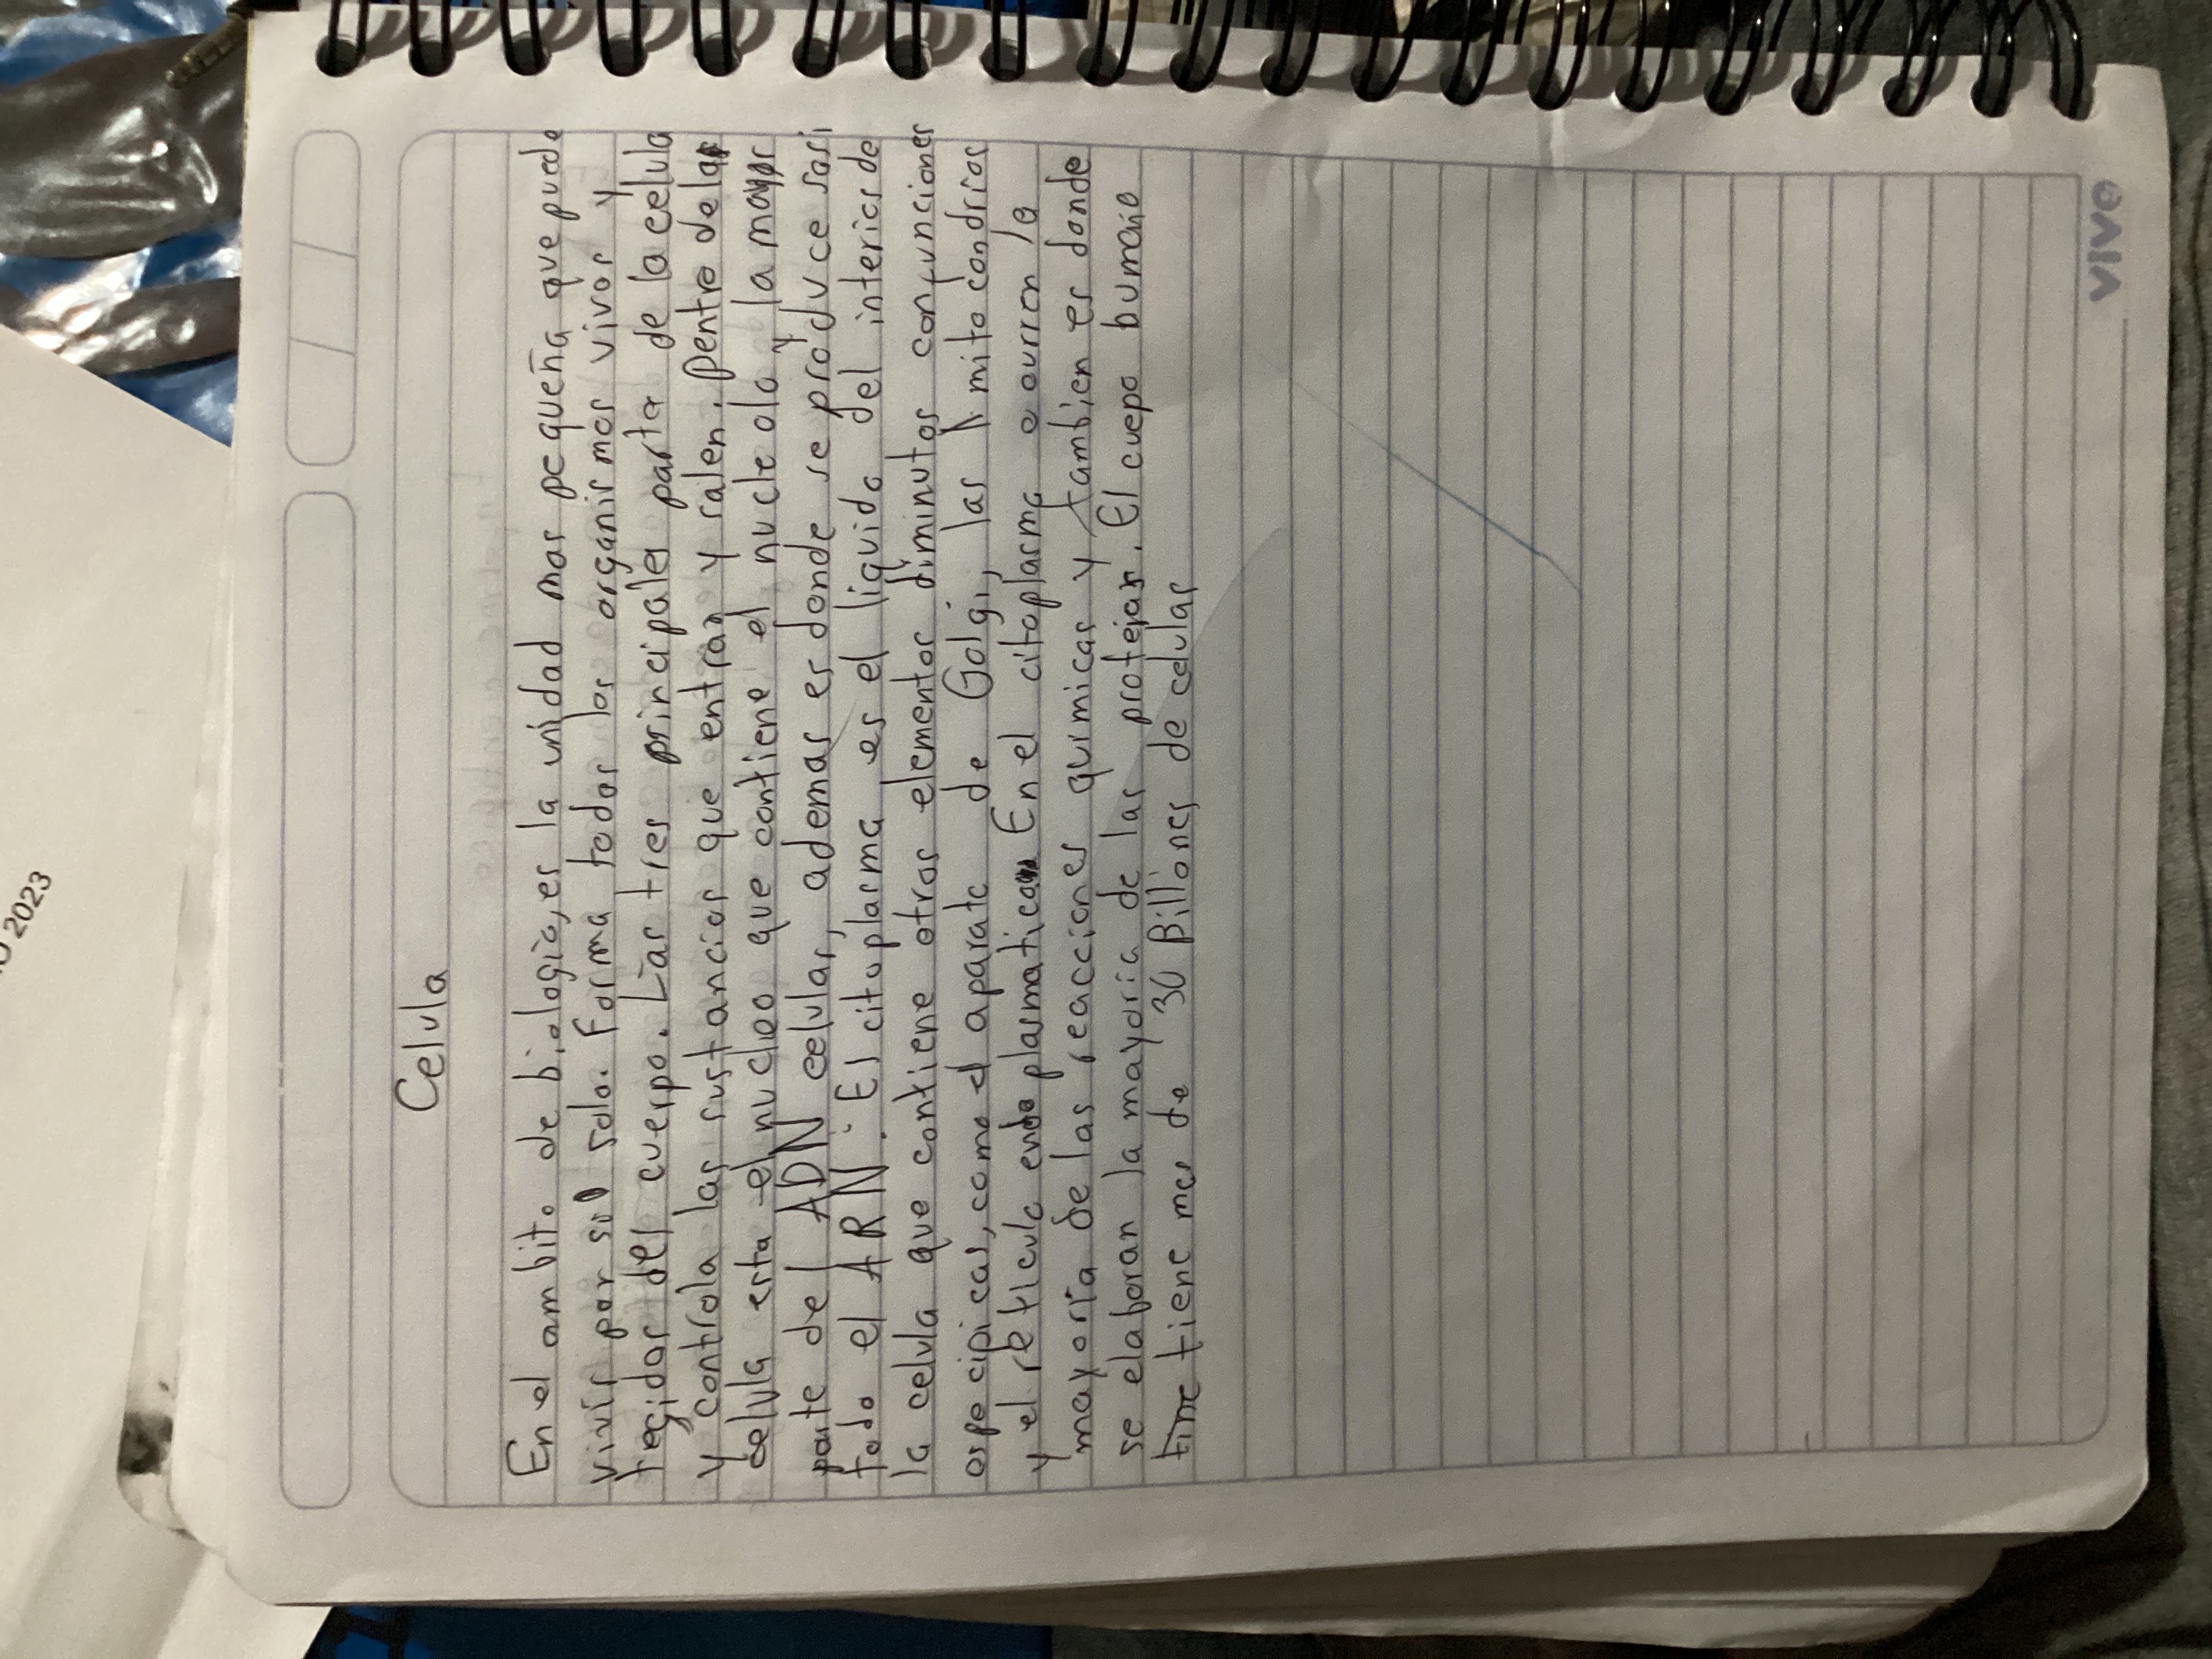 Celula
En el ambito de biologia, es la unidad mas pequeña que puede
vivir por si solo. Forma todos los organismos vivos y
tegidos del cuerpo. Las tres principales parte de la celula
y controla las sustancias que entran y salen. Dentro de las
celula esta el nucleo que contiene el nucleolo y la mayor
parte del ADN celular, ademas es donde se produce casi
todo el ARN. El citoplasma es el liquido del interior de
la celula que contiene otros elementos diminutos con funciones
especificas, como el aparato de Golgi, las mitocondrias
y el reticulo endoplasmatico. En el citoplasma ocurren la
mayoria de las reacciones quimicas y tambien es donde
se elaboran la mayoria de las protejas. El cuepo bumano
tiene mas de 30 Billones de celulas
vivo
2023